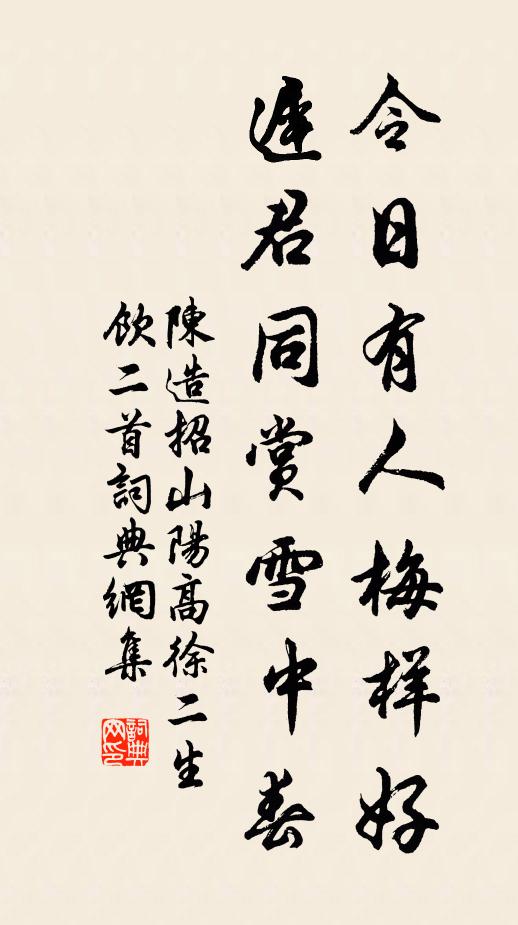 今日有人梅样好
遲君同賞雪中春
陳造招山陽高徐二生
飲二首詞典網集
詞典网印